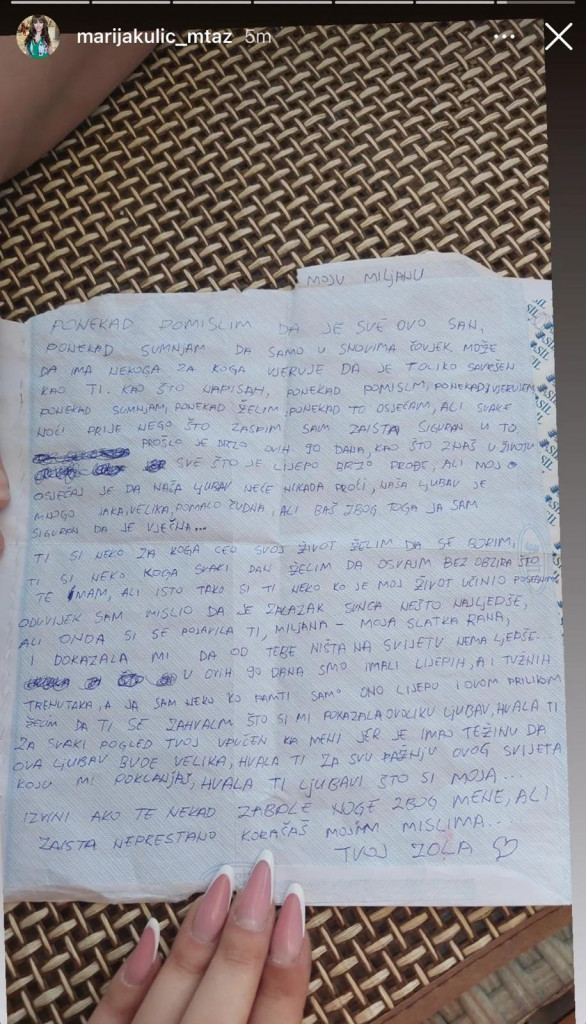 marijakulic_mtaz 5m
MOJU MILJANU
PONEKAD POMISLIM DA JE SVE OVO SAN,
PONEKAD SUMNJAM DA SAMO U SNOVIMA ČOVJEK MOŽE
DA IMA NEKOGA ZA KOGA VJERUJE DA JE TOLIKO SAVRŠEN
KAO TI. KAO ŠTO NAPISAH, PONEKAD POMISLIM, PONEKAD VJERUJEM,
PONEKAD SUMNJAM, PONEKAD ŽELIM, PONEKAD TO OSJEĆAM, ALI SVAKE
NOĆI PRIJE NEGO ŠTO ZASPIM SAM ZAISTA SIGURAN U TO.
PROŠLO JE BRZO OVIH 90 DANA, KAO ŠTO ZNAŠ U ŽIVOTU
SVE ŠTO JE LIJEPO BRZO PROĐE, ALI MOJ
OSJEĆAJ JE DA NAŠA LJUBAV NEĆE NIKADA PROĆI, NAŠA LJUBAV JE
MNOGO JAKA, VELIKA, POMALO ČUDNA, ALI BAŠ ZBOG TOGA JA SAM
SIGURAN DA JE VJEČNA...
TI SI NEKO ZA KOGA CEO SVOJ ŽIVOT ŽELIM DA SE BORIM,
TI SI NEKO KOGA SVAKI DAN ŽELIM DA OSVAJAM BEZ OBZIRA ŠTO
TE IMAM, ALI ISTO TAKO SI TI NEKO KO JE MOJ ŽIVOT UČINIO POSEBNIM,
ODUVIJEK SAM MISLIO DA JE ZALAZAK SUNCA NEŠTO NAJLJEPŠE,
ALI ONDA SI SE POJAVILA TI, MILJANA - MOJA SLATKA RANA,
I DOKAZALA MI DA OD TEBE NIŠTA NA SVIJETU NEMA LJEPŠE...
U OVIH 90 DANA SMO IMALI LIJEPIH, A I TUŽNIH
TRENUTAKA, A JA SAM NEKO KO PAMTI SAMO ONO LIJEPO I OVOM PRILIKOM
ŽELIM DA TI SE ZAHVALIM ŠTO SI MI POKAZALA OVOLIKU LJUBAV, HVALA TI
ZA SVAKI POGLED TVOJ UPUĆEN KA MENI JER JE IMAO TEŽINU DA
OVA LJUBAV BUDE VELIKA, HVALA TI ZA SVU PAŽNJU OVOG SVIJETA
KOJU MI POKLANJAŠ, HVALA TI LJUBAVI ŠTO SI MOJA...
IZVINI AKO TE NEKAD ZABOLE NOGE ZBOG MENE, ALI
ZAISTA NEPRESTANO KORAČAŠ MOJIM MISLIMA...
TVOJ ZOLA